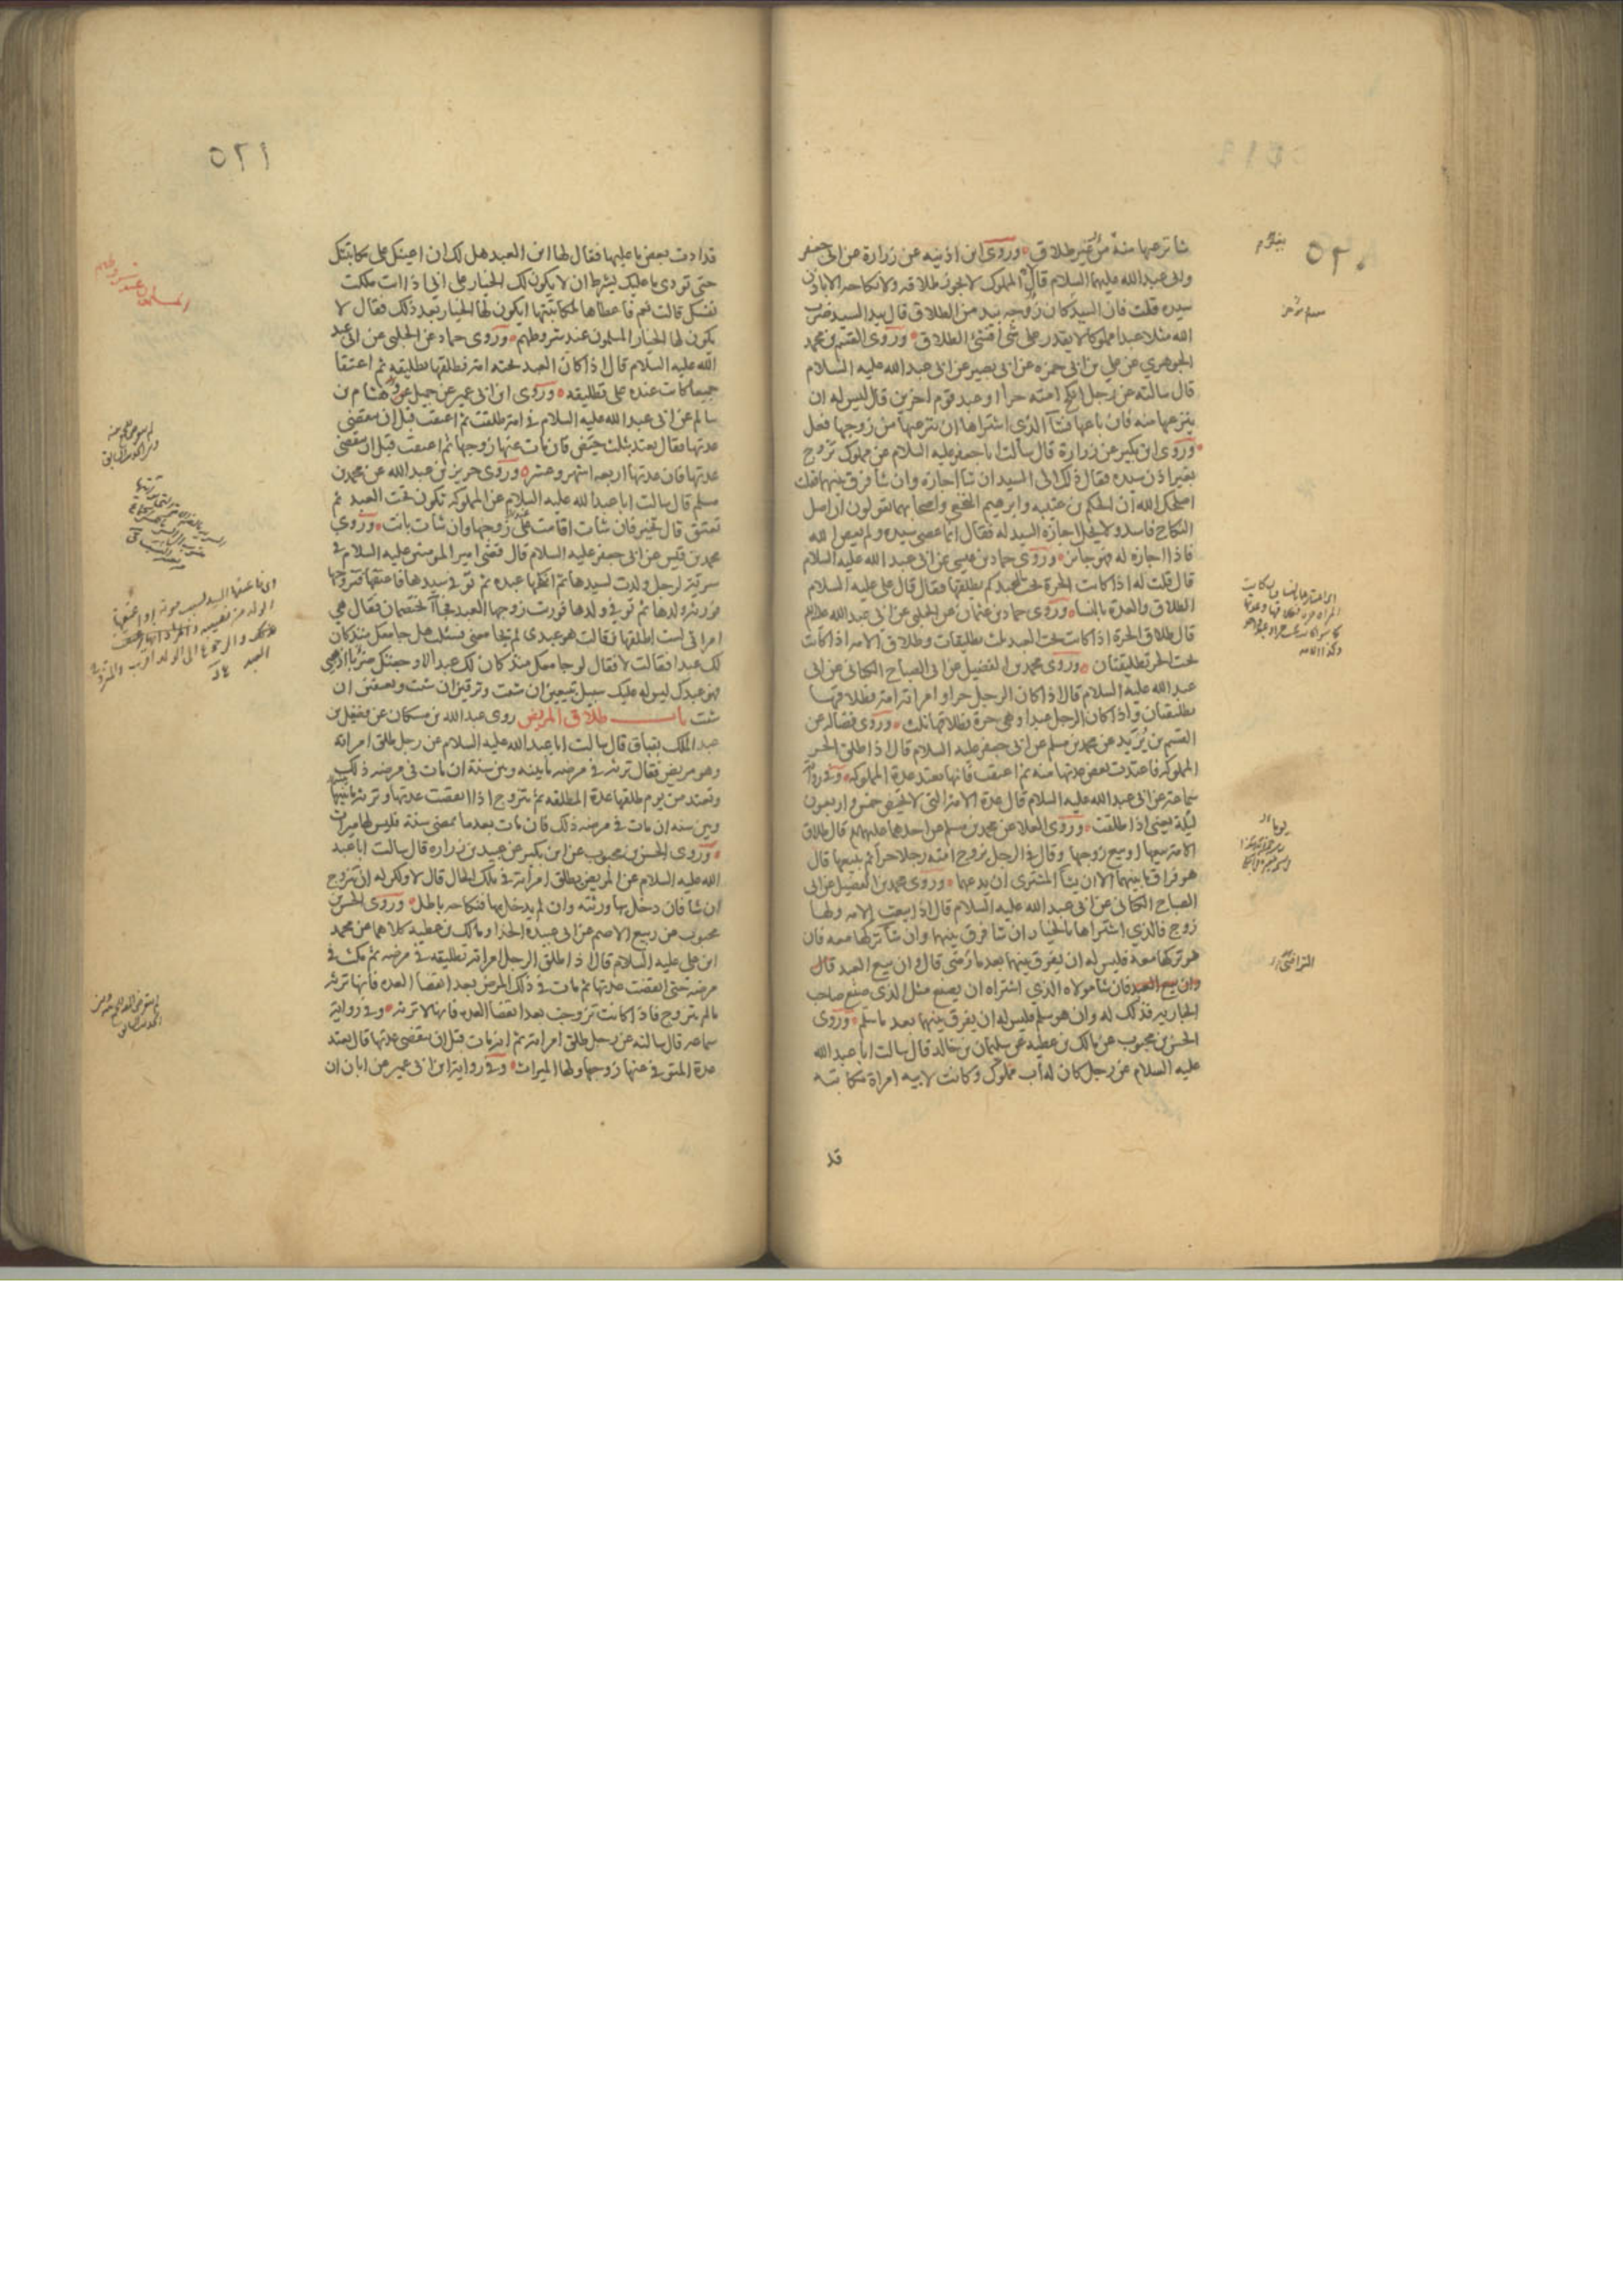 ٥٢٠
شا نزعها منه من غير طلاق وروى ابن اذينه عن زرارة عن ابى جعفر
وابى عبدالله عليهما السلام قال المملوك لا يجوز طلاقه ولا نكاحه الا باذن
سيده قلت فان السيد كان زوجه بيد من الطلاق قال بيد السيد ضرب
الله مثلا عبدا مملوكا لا يقدر على شى افشئ الطلاق وروى القسم بن محمد
الجوهري عن علي بن ابى حمزه عن ابى بصير عن ابى عبدالله عليه السلام
قال سالته عن رجل انكح امته حرا او عبد قوم اخرين قال ليس له ان
ينزعها منه فان باعها فشآ الذى اشتراها ان ينزعها من زوجها فعل
وروى ابن بكير عن زرارة قال سألت ابا جعفر عليه السلام عن مملوك تزوج
بغير اذن سيده فقال ذلك الى السيد ان شا اجازه وان شا فرق بينهما فقلت
اصلحك الله ان الحكم بن عتيبه وابرهيم النخعي واصحابهما يقولون ان اصل
النكاح فاسد ولا يحل اجازه السيد له فقال انما عصى سيده ولم يعص الله
فاذا اجازه له فهو جائز وروى حماد بن عيسى عن ابى عبد الله عليه السلام
قال قلت له اذا كانت الحرة تحت العبد كم يطلقها فقال قال على عليه السلام
الطلاق والعدة بالنسا وروى حماد بن عثمان عن الحلبي عن ابى عبد الله عليه السلام
قال طلاق الحرة اذا كانت تحت العبد ثلث تطليقات وطلاق الامه اذا كانت
تحت الحر تطليقتان وروى محمد بن الفضيل عن ابى الصباح الكنانى عن ابى
عبد الله عليه السلام قال اذا كان الرجل حرا وامراته امة فطلاقها
تطليقتان واذا كان الرجل عبدا وهى حرة فطلاقها ثلث وروى فضاله عن
القسم بن يزيد عن محمد بن مسلم عن ابى جعفر عليه السلام قال اذا طلق الحر
المملوكه فاعتدت بعض عدتها منه ثم اعتقت فانها تعتد عدة المملوكه وفى رواية
سماعة عن ابى عبد الله عليه السلام قال عدة الامة التى لا تحيض خمس واربعون
ليلة يعنى اذا طلقت وروى العلا عن محمد بن مسلم عن احدهما عليهما السلام قال طلاق
الامة بيعها او بيع زوجها وقال فى الرجل يزوج امته رجلا حرا ثم يبيعها قال
هو فراق ما بينهما الا ان يشا المشترى ان يدعهما وروى محمد بن الفضيل عن ابى
الصباح الكنانى عن ابى عبد الله عليه السلام قال اذا بيعت الامه ولها
زوج فالذي اشتراها بالخيار ان شا فرق بينهما وان شا تركها معه فان
هو تركها معه فليس له ان يفرق بينهما بعد ما رضى قال وان بيع العبد قال
وان بيع العبد فان شا مولاه الذي اشتراه ان يصنع مثل الذى صنع صاحب
الجاريه فذلك له وان هو سلم فليس له ان يفرق بينهما بعد ما سلم وروى
الحسن بن محبوب عن مالك بن عطيه عن سليمان بن خالد قال سالت ابا عبد الله
عليه السلام عن رجل كان له اب مملوك وكانت لابيه امراة مكاتبة
قد
٥٢١
قد ادت بعض ما عليها فقال لها ابن العبد هل لك ان اعينك على مكاتبتك
حتى تودى ما عليك بشرط ان لا يكون لك الخيار على ابى اذا انت ملكت
نفسك قالت نعم فاعطاها لمكاتبتها ايكون لها الخيار بعد ذلك فقال لا
يكون لها الخيار المسلمون عند شروطهم وروى حماد عن الحلبى عن ابى عبد
الله عليه السلام قال اذا كان العبد تحته امة فطلقها تطليقه ثم اعتقا
جميعا كانت عنده على تطليقه وروى ابن ابى عمير عن جميل عن هشام بن
سالم عن ابى عبد الله عليه السلام فى امة طلقت ثم اعتقت قبل ان تنقضى
عدتها فقال تعتد بثلث حيض فان مات عنها زوجها ثم اعتقت قبل ان تنقضى
عدتها فان عدتها اربعه اشهر وعشر وروى حريز بن عبد الله عن محمد بن
مسلم قال سالت ابا عبد الله عليه السلام عن المملوكه تكون تحت العبد ثم
تعتق قال تخير فان شات اقامت على زوجها وان شات بانت وروى
محمد بن قيس عن ابى جعفر عليه السلام قال قضى امير المومنين عليه السلام فى
سرية لرجل ولدت لسيدها ثم انكحها عبده ثم توفى سيدها فاعتقها فتزوجها
فورثه ولدها ثم توفى ولدها فورثت زوجها العبد فجاآ يختصمان فقال هى
امراتى لست اطلقها فقالت هو عبدى لم يجامعنى فسئلت هل جامعك منذ كان
لك عبدا فقالت لا فقال لو جامعك منذ كان لك عبدا لاوجعتك ضربا اذهبى
فهو عبدك ليس له عليك سبيل تبيعين ان شئت وترقين ان شئت وتعتقين ان
شئت باب طلاق المريض روى عبد الله بن مسكان عن فضيل بن
عبد الملك بقباق قال سالت ابا عبد الله عليه السلام عن رجل طلق امراته
وهو مريض فقال ترثه فى مرضه ما بينه وبين سنة ان مات فى مرضه ذلك
وتعتد من يوم طلقها عدة المطلقه ثم تتزوج اذا انقضت عدتها وترثه ما بينها
وبين سنه ان مات فى مرضه ذلك فان مات بعد ما تمضى سنة فليس لها ميراث
وروى الحسن بن محبوب عن ابن بكير عن عبيد بن زراره قال سالت ابا عبد
الله عليه السلام عن المريض يطلق امراته فى تلك الحال قال لا ولكن له ان يتزوج
ان شا فان دخل بها ورثته وان لم يدخل بها فنكاحه باطل وروى الحسن بن
محبوب عن ربيع الاصم عن ابى عبيده الحذا ومالك بن عطية كلاهما عن محمد
ابن على عليه السلام قال اذا طلق الرجل امراته تطليقه فى مرضه ثم مكث فى
مرضه حتى انقضت عدتها ثم مات فى ذلك المرض بعد انقضا العده فانها ترثه
ما لم يتزوج فاذا كانت تزوجت بعد انقضا العده فانها لا ترثه وفى رواية
سماعه قال سالته عن رجل طلق امراته ثم انه مات قبل ان تنقضى عدتها قال تعتد
عدة المتوفى عنها زوجها ولها الميراث وفى رواية ابن ابى عمير عن ابان ان
المسلمون عند شروطهم